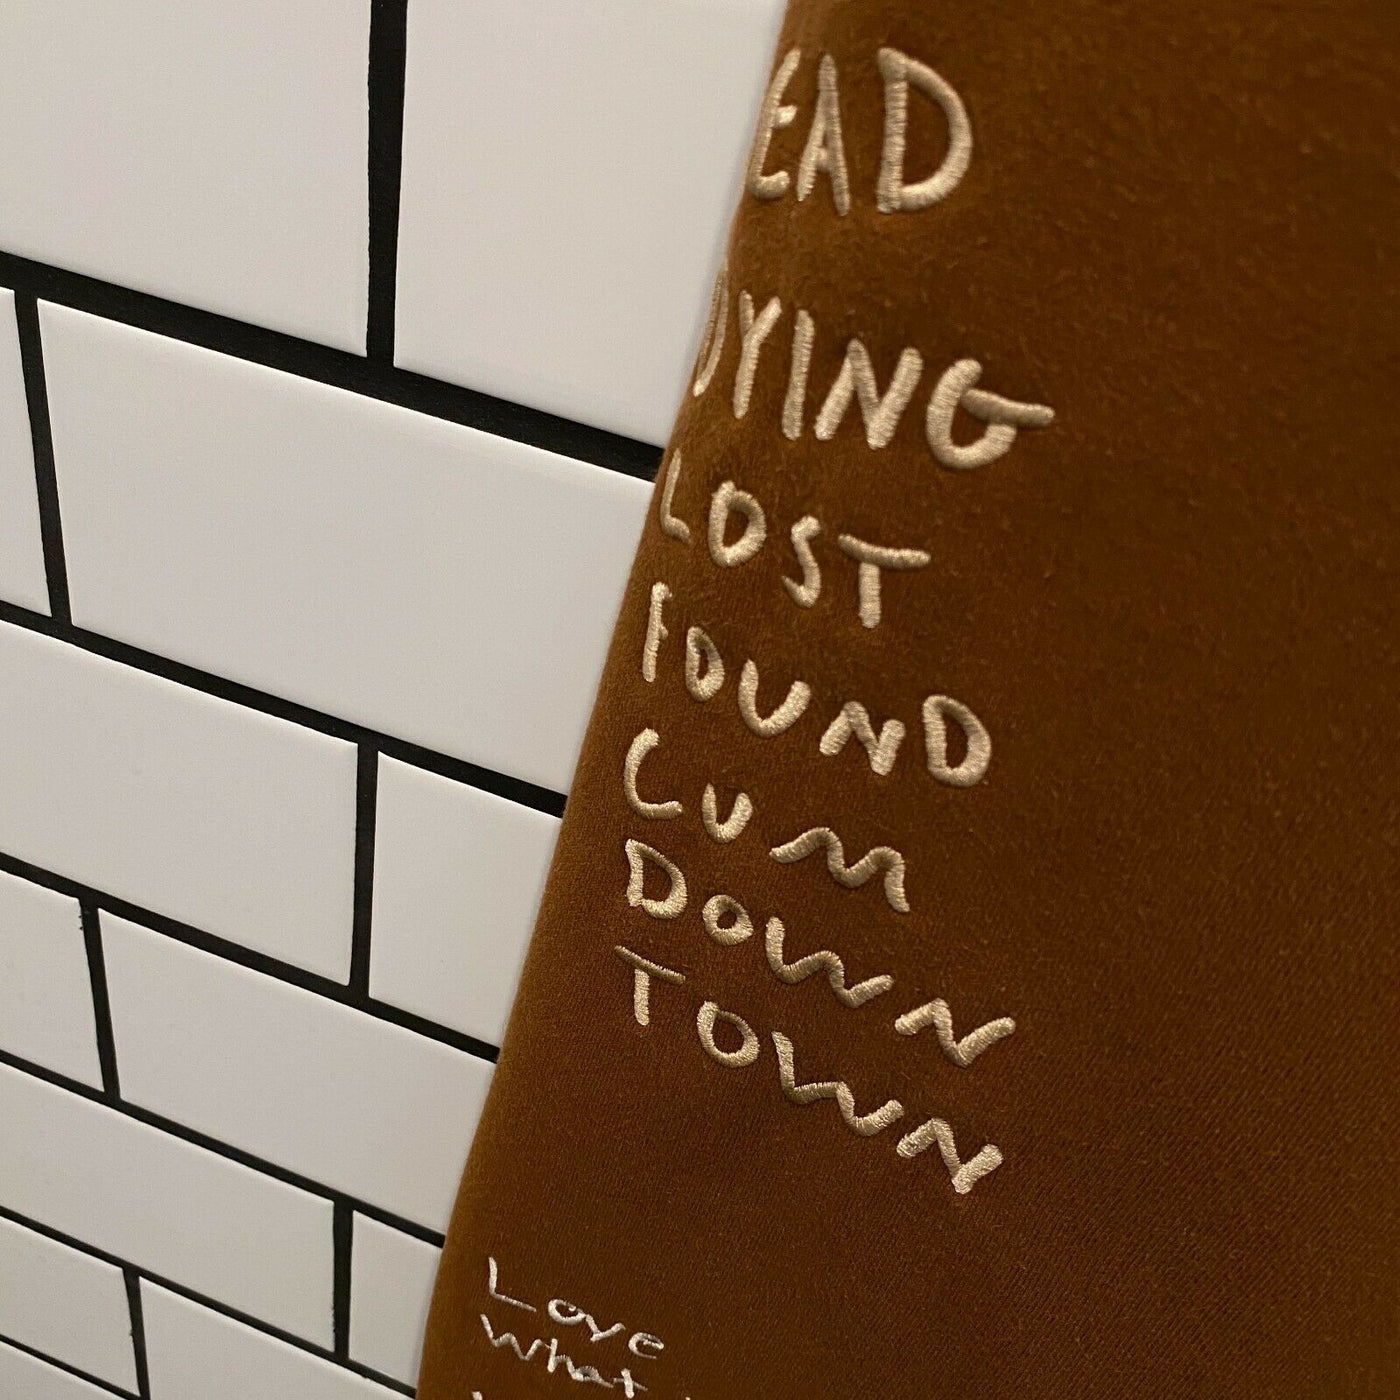 EAD
DYING
LOST
FOUND
CUM
DOWN
TOWN
Love
What